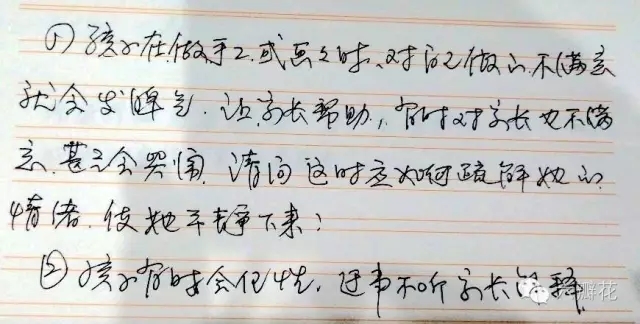 ① 孩子在做手工或画画时、对自己做的不满意
就会发脾气.让家长帮助,有时对家长也不满
意.甚至会哭闹.请问这时应如何疏解她的
情绪.使她平静下来?
② 孩子有时会任性,遇事不听家长解释
瓣花